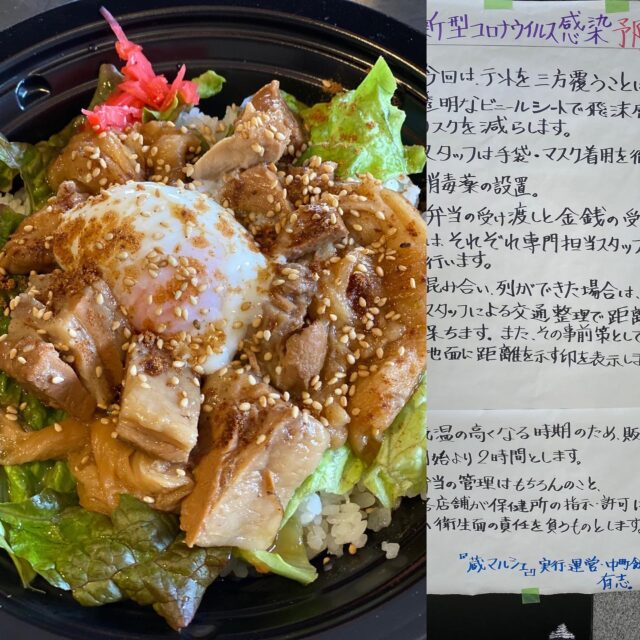 新型コロナウイルス感染予
今回は、テントを三方覆うこと
透明なビニールシートで飛沫
リスクを減らします。
スタッフは手袋・マスク着用を
消毒薬の設置。
弁当の受け渡しと金銭の受
は、それぞれ専門担当スタッフ
行います。
混み合い、列ができた場合は、
スタッフによる交通整理で距離
保ちます。また、その事前策として
地面に距離を示す印を表示しま
気温の高くなる時期のため、販
開始より2時間とします。
弁当の管理はもちろんのこと、
各店舗が保健所の指示・許可
衛生面の責任を負うものとします
『蔵マルシェ』実行運営・中町
有志。